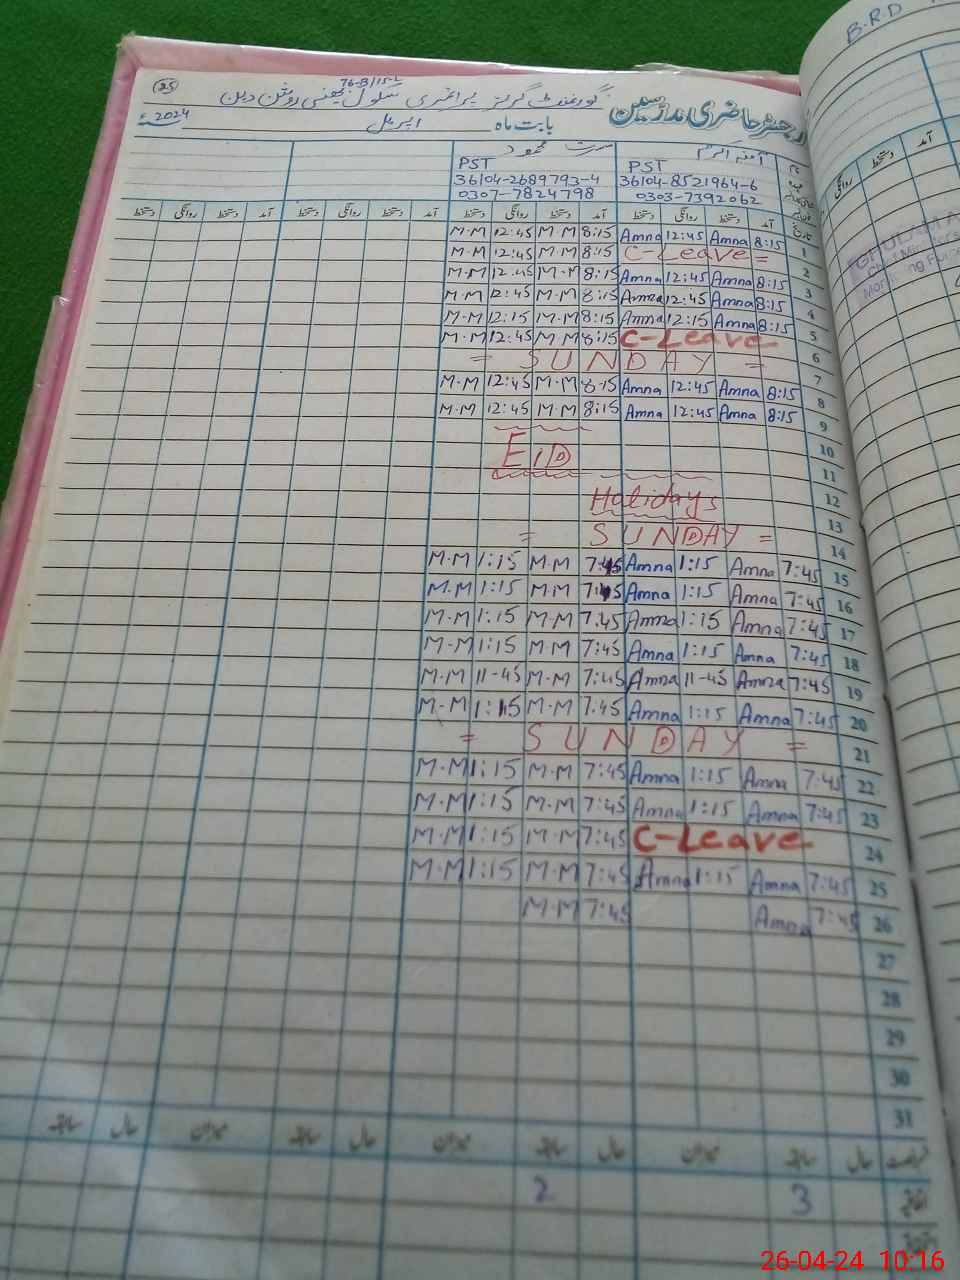 B.R.D
25
76-B/15-L
گورنمنٹ گرلز پرائمری سکول بھینی روشن دین
رجسٹر حاضری مدرسین
بابت ماہ اپریل 2024ء
آمنہ اکرم
مسرت محمود
PST PST
36104-2689793-4 36104-8521964-6
0307-7824798 0303-7392062
تاریخ آمد دستخط روانگی دستخط آمد دستخط روانگی دستخط آمد دستخط روانگی دستخط آمد دستخط روانگی دستخط
M.M 12:45 M.M 8:15 Amna 12:45 Amna 8:15 1
M.M 12:45 M.M 8:15 C-Leave = 2
M.M 12:45 M.M 8:15 Amna 12:45 Amna 8:15 3
M.M 12:45 M.M 8:15 Amna 12:45 Amna 8:15 4
M.M 12:15 M.M 8:15 Amna 12:15 Amna 8:15 5
M.M 12:45 M.M 8:15 C-Leave 6
= SUNDAY = 7
M.M 12:45 M.M 8:15 Amna 12:45 Amna 8:15 8
M.M 12:45 M.M 8:15 Amna 12:45 Amna 8:15 9
EID 10
11
Holidays 12
13
= SUNDAY = 14
M.M 1:15 M.M 7:45 Amna 1:15 Amna 7:45 15
M.M 1:15 M.M 7:45 Amna 1:15 Amna 7:45 16
M.M 1:15 M.M 7:45 Amna 1:15 Amna 7:45 17
M.M 1:15 M.M 7:45 Amna 1:15 Amna 7:45 18
M.M 11-45 M.M 7:45 Amna 11-45 Amna 7:45 19
M.M 1:15 M.M 7:45 Amna 1:15 Amna 7:45 20
= SUNDAY = 21
M.M 1:15 M.M 7:45 Amna 1:15 Amna 7:45 22
M.M 1:15 M.M 7:45 Amna 1:15 Amna 7:45 23
M.M 1:15 M.M 7:45 C-Leave 24
M.M 1:15 M.M 7:45 Amna 1:15 Amna 7:45 25
M.M 7:45 Amna 7:45 26
27
28
29
30
31
حال سابقہ میزان حال سابقہ میزان حال سابقہ میزان حال سابقہ
اتفاقیہ 3 2
آمد
دستخط
روانگی
26-04-24 10:16